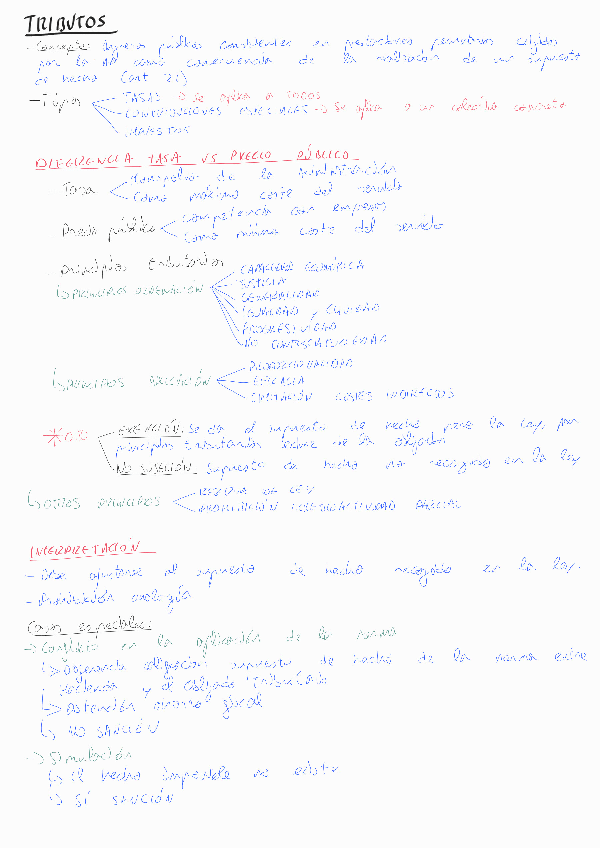 TRIBUTOS
- Concepto: Ingresos públicos consistentes en prestaciones pecuniarias exigidas
por la AP como consecuencia de la realización de un supuesto
de hecho (art. 2.1)
- Tipos
TASAS → Se aplica a todos
CONTRIBUCIONES ESPECIALES → Se aplica a un colectivo concreto
IMPUESTOS
DIFERENCIA TASA VS PRECIO PÚBLICO
Tasa
Monopolio de la Administración
Como máximo coste del servicio
Precio público
Competencia con empresas
Como mínimo coste del servicio
- Principios tributarios
↳ PRINCIPIOS ORDENACIÓN
CAPACIDAD ECONÓMICA
JUSTICIA
GENERALIDAD
IGUALDAD y EQUIDAD
PROGRESIVIDAD
NO CONFISCATORIEDAD
↳ PRINCIPIOS APLICACIÓN
PROPORCIONALIDAD
EFICACIA
LIMITACIÓN COSTES INDIRECTOS
EXENCIÓN: Se da el supuesto de hecho pero la ley, por
principios tributarios, exime de la obligación
NO SUJECIÓN: Supuesto de hecho no recogido en la ley
↳ OTROS PRINCIPIOS
RESERVA DE LEY
RETROACTIVIDAD PARCIAL
INTERPRETACIÓN
- Debe ajustarse al supuesto de hecho recogido en la ley.
- Prohibición analogía
Casos especiales:
→ Conflicto en la aplicación de la norma
↳ obligación supuesto de hecho de la norma entre
Hacienda y el obligado tributario
↳ Obtención "ahorro" fiscal
↳ NO SANCIÓN
→ Simulación
↳ El hecho imponible no existe
↳ SÍ SANCIÓN